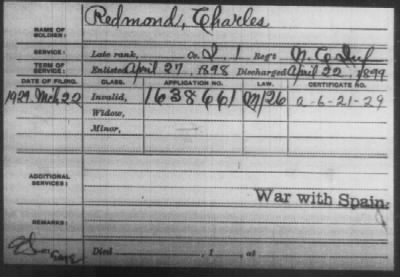 NAME OF SOLDIER: Redmond, Charles
SERVICE: Late rank, Co. I, 1 Reg't N. C. Inf
TERM OF SERVICE: Enlisted April 27, 1898 Discharged April 22, 1899
DATE OF FILING. CLASS. APPLICATION NO. LAW. CERTIFICATE NO.
1929 Mch 22 Invalid, 1638661 a-6-21-29
Widow,
Minor,
ADDITIONAL SERVICES:
War with Spain.
REMARKS:
Died , 1 , at